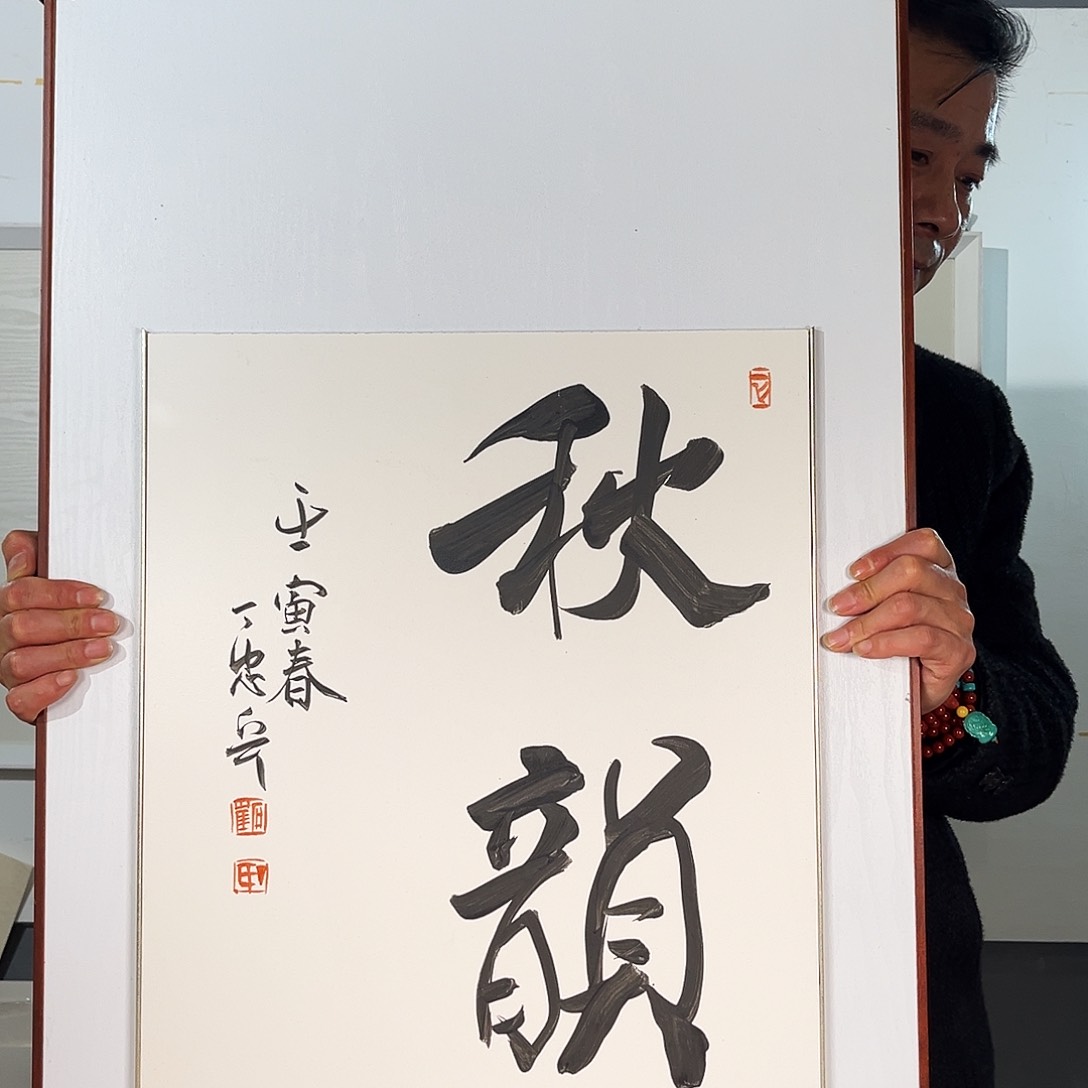 秋韻
壬寅春
丁忠兵